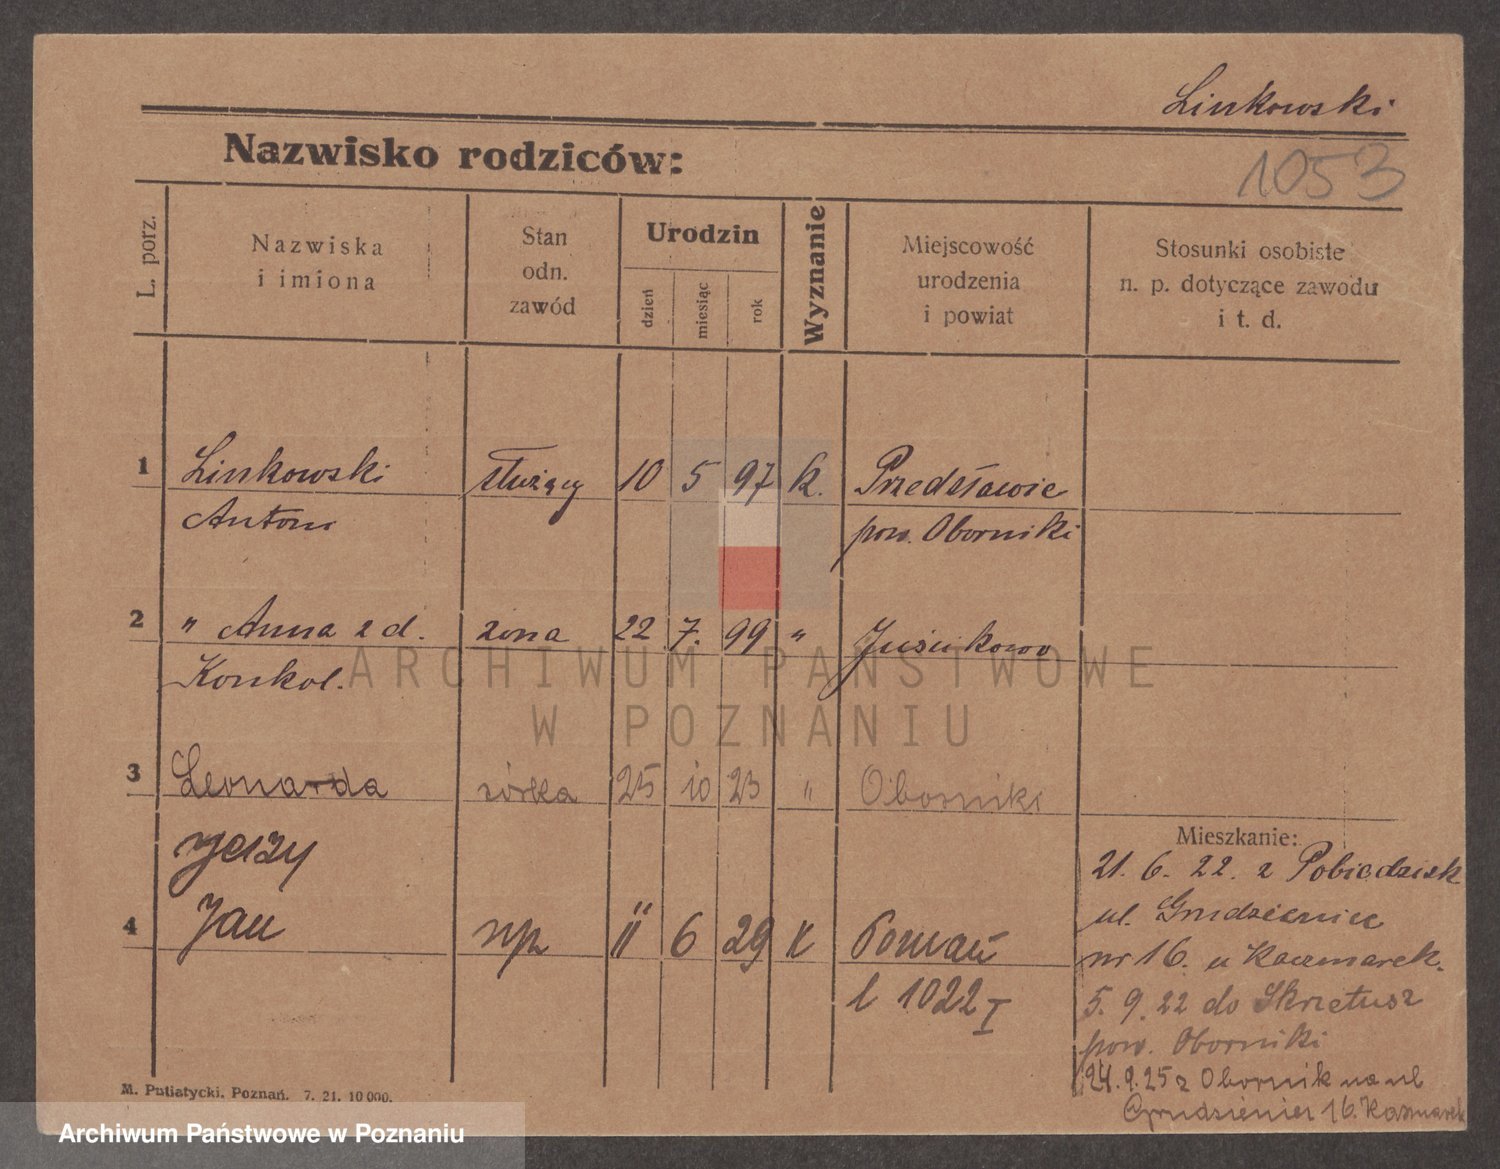 Linkowski
Nazwisko rodziców:
1053
L. porz.
Nazwiska
i imiona
Stan
odn.
zawód
Urodzin
dzień
miesiąc
rok
Wyznanie
Miejscowość
urodzenia
i powiat
Stosunki osobiste
n. p. dotyczące zawodu
i t. d.
1 Linkowski służący 10 5 97 k. Przedsławie
Antoni pow. Oborniki
2 " Anna z d. żona 22 7. 99 "
Konkol.
ARCHIWUM PAŃSTWOWE
W POZNANIU
3 Leonarda córka 25 10 23 " Oborniki
Jerzy
4 Jan 11 6 29 K Poznań
l 1022 I
Mieszkanie:
21. 6. 22. z Pobiedzisk
ul. Grudzieniec
nr 16. u Kaczmarek.
5. 9. 22 do Skrzetusz
pow. Oborniki
24. 9. 25 z Obornik na ul
Grudzieniec 16. Kaczmarek
M. Putiatycki, Poznań. 7. 21. 10 000.
Archiwum Państwowe w Poznaniu